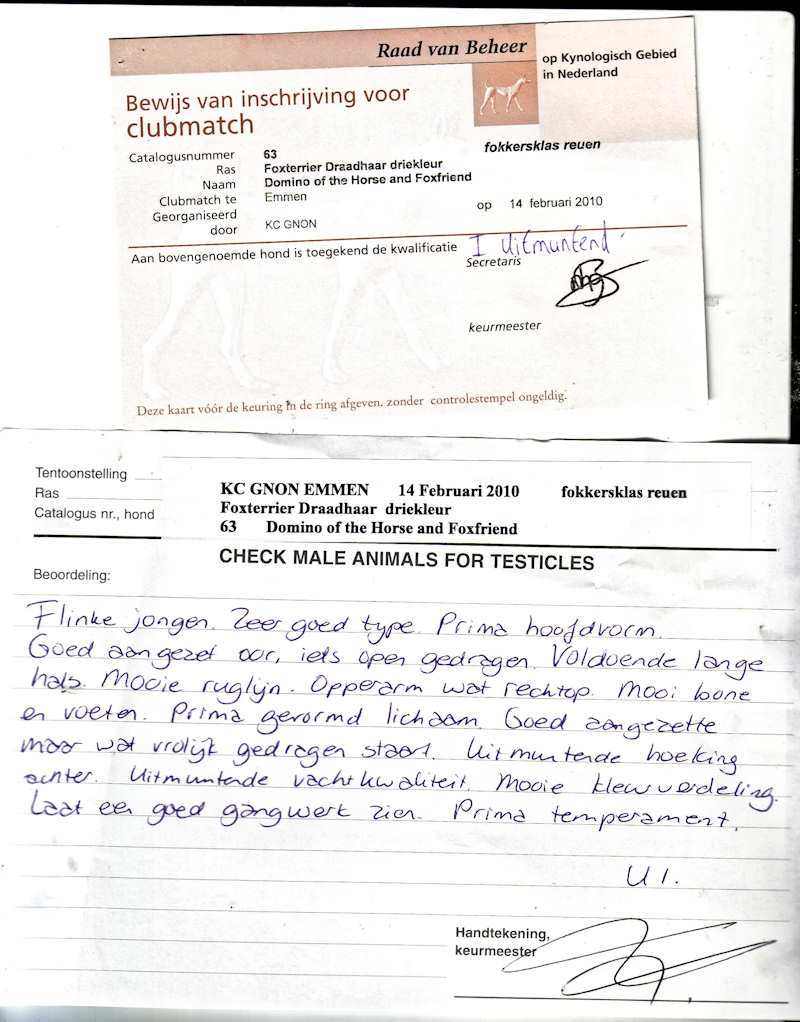 Raad van Beheer
op Kynologisch Gebied
in Nederland
Bewijs van inschrijving voor
clubmatch
fokkersklas reuen
Catalogusnummer 63
Ras Foxterrier Draadhaar driekleur
Naam Domino of the Horse and Foxfriend
Clubmatch te Emmen
op 14 februari 2010
Georganiseerd
door KC GNON
Aan bovengenoemde hond is toegekend de kwalificatie I Uitmuntend.
Secretaris
keurmeester
Deze kaart vóór de keuring in de ring afgeven. zonder controlestempel ongeldig.
Tentoonstelling KC GNON EMMEN 14 Februari 2010 fokkersklas reuen
Ras Foxterrier Draadhaar driekleur
Catalogus nr., hond 63 Domino of the Horse and Foxfriend
CHECK MALE ANIMALS FOR TESTICLES
Beoordeling:
Flinke jongen. Zeer goed type. Prima hoofdvorm.
Goed aangezet oor, iets open gedragen. Voldoende lange
hals. Mooie ruglijn. Opperarm wat rechtop. Mooi bone
en voeten. Prima gevormd lichaam. Goed aangezette
maar wat vrolijk gedragen staart. Uitmuntende hoeking
achter. Uitmuntende vachtkwaliteit. Mooie kleurverdeling.
Laat een goed gangwerk zien. Prima temperament.
U 1.
Handtekening,
keurmeester